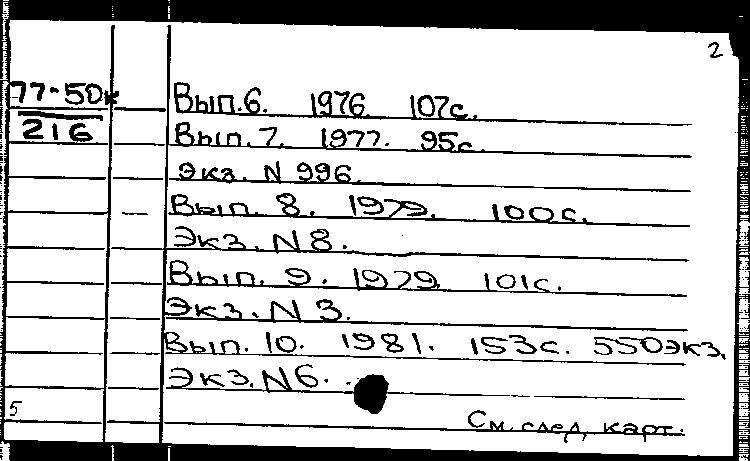 2
77-50к Вып.6. 1976. 107с.
216 Вып.7. 1977. 95с.
Экз. N 996.
Вып. 8. 1979. 100с.
Экз. N 8.
Вып. 9. 1979. 101с.
Экз. N 3.
Вып. 10. 1981. 153с. 550экз.
Экз. N 6.
5
См. след. карт.